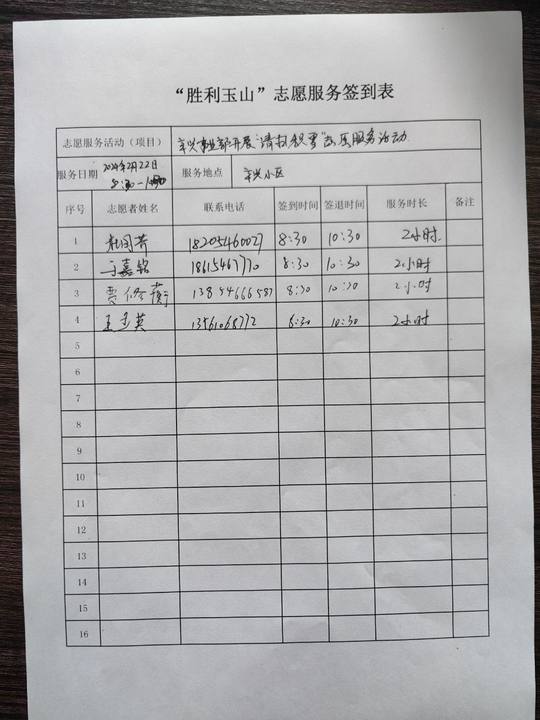 “胜利玉山”志愿服务签到表
志愿服务活动（项目） 辛兴事业部开展“清扫积雪”志愿服务活动
服务日期 2024年2月22日 8:30-10:30 服务地点 辛兴小区
序号 志愿者姓名 联系电话 签到时间 签退时间 服务时长 备注
1 杜国芳 18205460027 8:30 10:30 2小时
2 于嘉铭 18615467770 8:30 10:30 2小时
3 贾修蘅 13854666587 8:30 10:30 2小时
4 王玉英 13561068772 8:30 10:30 2小时
5
6
7
8
9
10
11
12
13
14
15
16